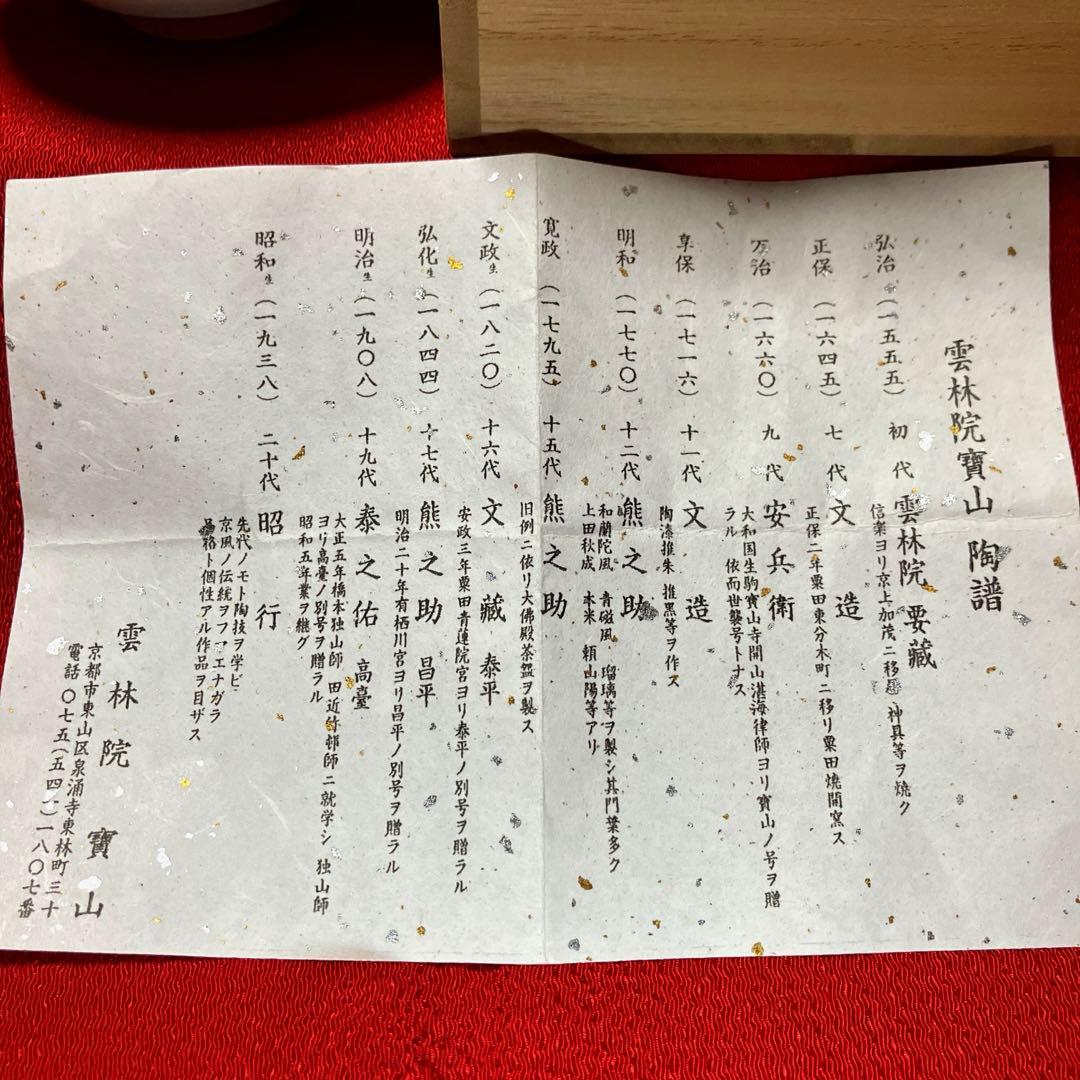 雲林院寶山 陶譜
弘治(一五五五) 初代 雲林院 要藏
信楽ヨリ京上加茂ニ移リ 神具等ヲ焼ク
正保(一六四五) 七代 文造
正保二年粟田東分木町ニ移リ粟田焼開窯ス
万治(一六六〇) 九代 安兵衛
大和国生駒寶山寺開山湛海律師ヨリ寶山ノ号ヲ贈
ラル 依而世襲号トナス
享保(一七一六) 十一代 文造
陶漆推朱 推黒等ヲ作ス
明和(一七七〇) 十二代 熊之助
和蘭陀風 青磁風 瑠璃等ヲ製シ其門葉多ク
上田秋成 木米 頼山陽等アリ
寛政(一七九五) 十五代 熊之助
旧例ニ依リ大佛殿茶盌ヲ製ス
文政生(一八二〇) 十六代 文藏 泰平
安政三年粟田青蓮院宮ヨリ泰平ノ別号ヲ贈ラル
弘化生(一八四四) 十七代 熊之助 昌平
明治二十年有栖川宮ヨリ昌平ノ別号ヲ贈ラル
明治生(一九〇八) 十九代 泰之佑 高臺
大正五年橋本独山師 田近竹邨師ニ就学シ 独山師
ヨリ高臺ノ別号ヲ贈ラル
昭和五年業ヲ継グ
昭和生(一九三八) 二十代 昭行
先代ノモト陶技ヲ学ビ
京風ノ伝統ヲフマエナガラ
品格ト個性アル作品ヲ目ザス
雲林院寶山
京都市東山区泉涌寺東林町三十
電話 〇七五(五四一)一八〇七番